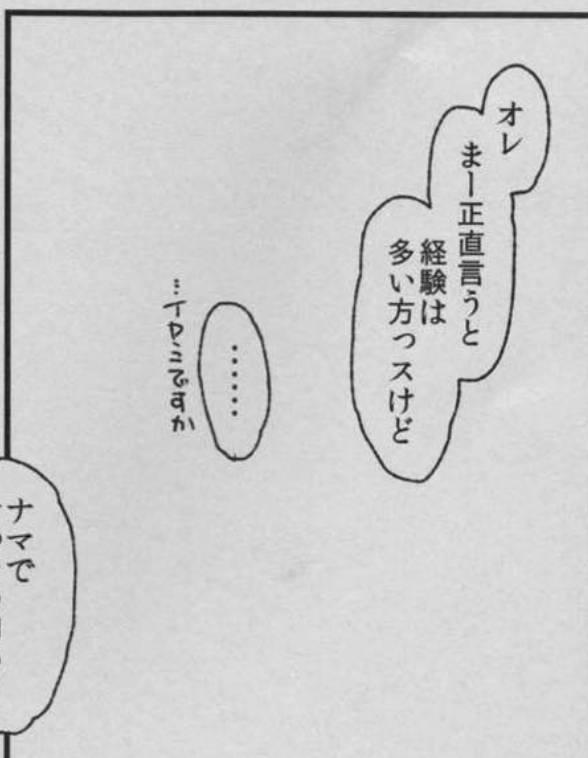 オレ
まー正直言うと
経験は
多い方っスけど
……
…イヤミですか
ナマで